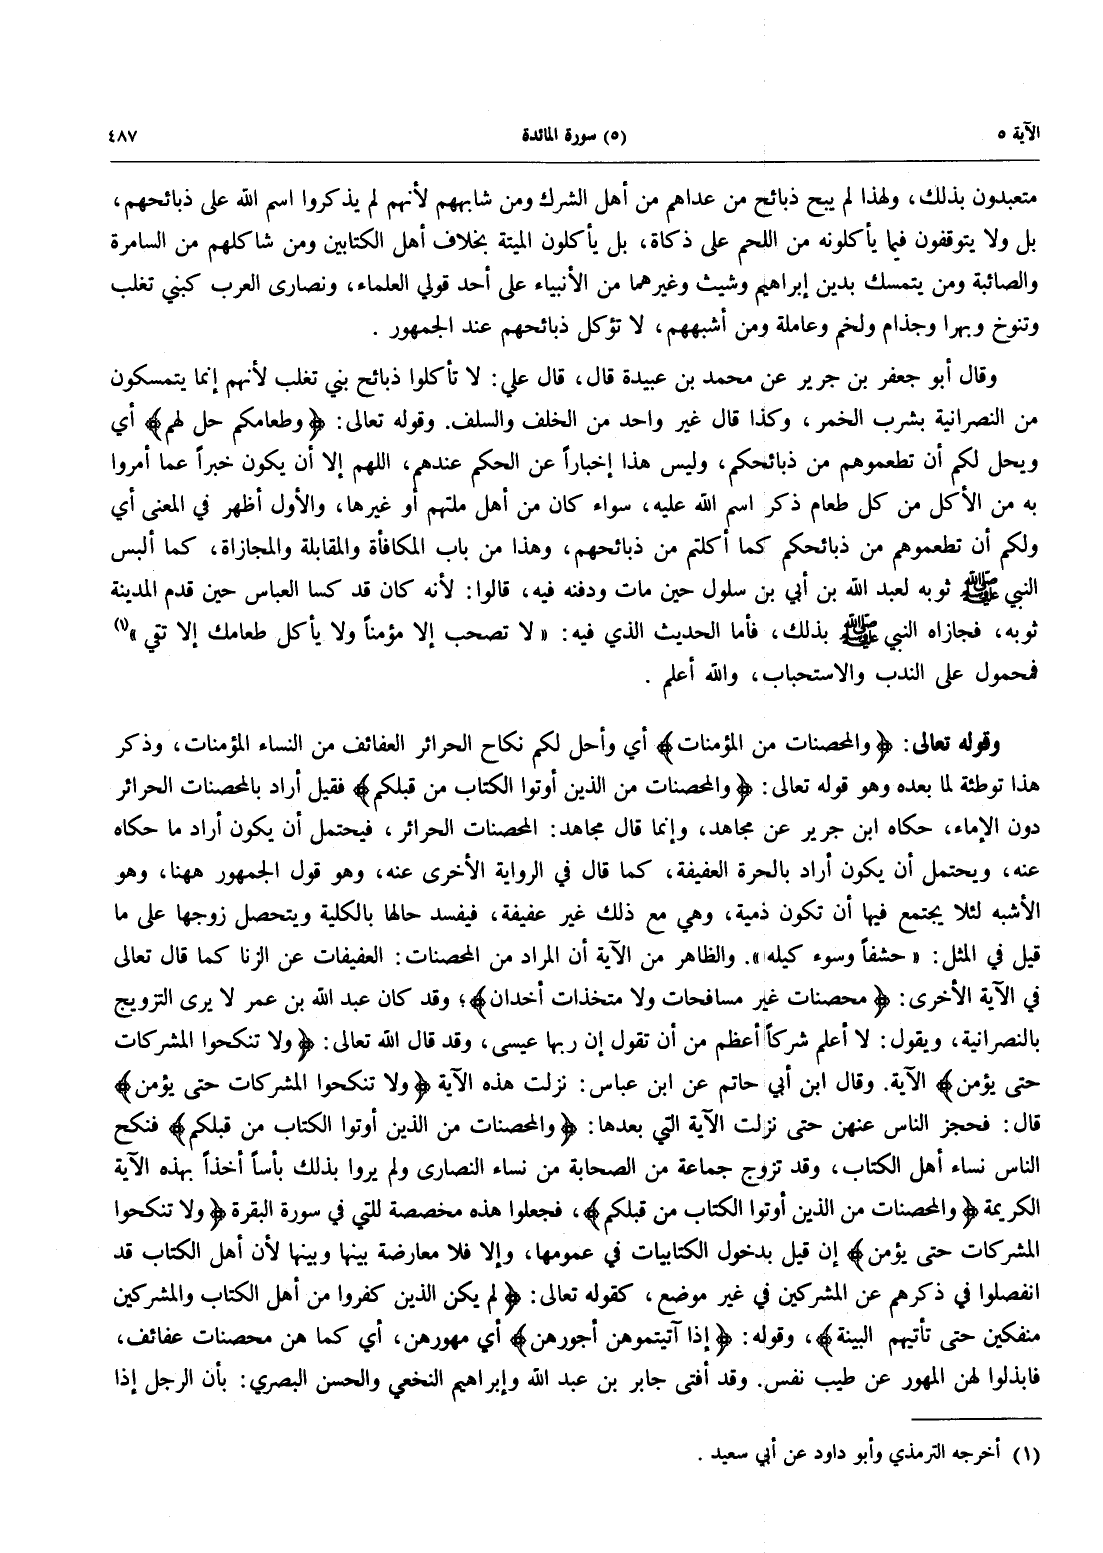 الآية ٥
(٥) سورة المائدة
٤٨٧
متعبدون بذلك، ولهذا لم يبح ذبائح من عداهم من أهل الشرك ومن شابههم لأنهم لم يذكروا اسم الله على ذبائحهم،
بل ولا يتوقفون فيما يأكلونه من اللحم على ذكاة، بل يأكلون الميتة بخلاف أهل الكتابين ومن شاكلهم من السامرة
والصائبة ومن يتمسك بدين إبراهيم وشيث وغيرهما من الأنبياء على أحد قولي العلماء، ونصارى العرب كبني تغلب
وتنوخ وبهرا وجذام ولخم وعاملة ومن أشبههم، لا تؤكل ذبائحهم عند الجمهور .
وقال أبو جعفر بن جرير عن محمد بن عبيدة قال، قال علي: لا تأكلوا ذبائح بني تغلب لأنهم إنما يتمسكون
من النصرانية بشرب الخمر، وكذا قال غير واحد من الخلف والسلف. وقوله تعالى: ﴿وطعامكم حل لهم﴾ أي
ويحل لكم أن تطعموهم من ذبائحكم، وليس هذا إخباراً عن الحكم عندهم، اللهم إلا أن يكون خبراً عما أمروا
به من الأكل من كل طعام ذكر اسم الله عليه، سواء كان من أهل ملتهم أو غيرها، والأول أظهر في المعنى أي
ولكم أن تطعموهم من ذبائحكم كما أكلتم من ذبائحهم، وهذا من باب المكافأة والمقابلة والمجازاة، كما ألبس
النبي ﷺ ثوبه لعبد الله بن أبي بن سلول حين مات ودفنه فيه، قالوا: لأنه كان قد كسا العباس حين قدم المدينة
ثوبه، فجازاه النبي ﷺ بذلك، فأما الحديث الذي فيه: « لا تصحب إلا مؤمناً ولا يأكل طعامك إلا تقي »(١)
فمحمول على الندب والاستحباب، والله أعلم .
وقوله تعالى: ﴿والمحصنات من المؤمنات﴾ أي وأحل لكم نكاح الحرائر العفائف من النساء المؤمنات، وذكر
هذا توطئة لما بعده وهو قوله تعالى: ﴿والمحصنات من الذين أوتوا الكتاب من قبلكم﴾ فقيل أراد بالمحصنات الحرائر
دون الإماء، حكاه ابن جرير عن مجاهد، وإنما قال مجاهد: المحصنات الحرائر، فيحتمل أن يكون أراد ما حكاه
عنه، ويحتمل أن يكون أراد بالحرة العفيفة، كما قال في الرواية الأخرى عنه، وهو قول الجمهور ههنا، وهو
الأشبه لئلا يجتمع فيها أن تكون ذمية، وهي مع ذلك غير عفيفة، فيفسد حالها بالكلية ويتحصل زوجها على ما
قيل في المثل: « حشفاً وسوء كيله ». والظاهر من الآية أن المراد من المحصنات: العفيفات عن الزنا كما قال تعالى
في الآية الأخرى: ﴿محصنات غير مسافحات ولا متخذات أخدان﴾؛ وقد كان عبد الله بن عمر لا يرى التزويج
بالنصرانية، ويقول: لا أعلم شركاً أعظم من أن تقول إن ربها عيسى، وقد قال الله تعالى: ﴿ولا تنكحوا المشركات
حتى يؤمن﴾ الآية. وقال ابن أبي حاتم عن ابن عباس: نزلت هذه الآية ﴿ولا تنكحوا المشركات حتى يؤمن﴾
قال: فحجز الناس عنهن حتى نزلت الآية التي بعدها: ﴿والمحصنات من الذين أوتوا الكتاب من قبلكم﴾ فنكح
الناس نساء أهل الكتاب، وقد تزوج جماعة من الصحابة من نساء النصارى ولم يروا بذلك بأساً أخذاً بهذه الآية
الكريمة ﴿والمحصنات من الذين أوتوا الكتاب من قبلكم﴾، فجعلوا هذه مخصصة للتي في سورة البقرة ﴿ولا تنكحوا
المشركات حتى يؤمن﴾ إن قيل بدخول الكتابيات في عمومها، وإلا فلا معارضة بينها وبينها لأن أهل الكتاب قد
انفصلوا في ذكرهم عن المشركين في غير موضع، كقوله تعالى: ﴿لم يكن الذين كفروا من أهل الكتاب والمشركين
منفكين حتى تأتيهم البينة﴾، وقوله: ﴿إذا آتيتموهن أجورهن﴾ أي مهورهن، أي كما هن محصنات عفائف،
فابذلوا لهن المهور عن طيب نفس. وقد أفتى جابر بن عبد الله وإبراهيم النخعي والحسن البصري: بأن الرجل إذا
(١) أخرجه الترمذي وأبو داود عن أبي سعيد .